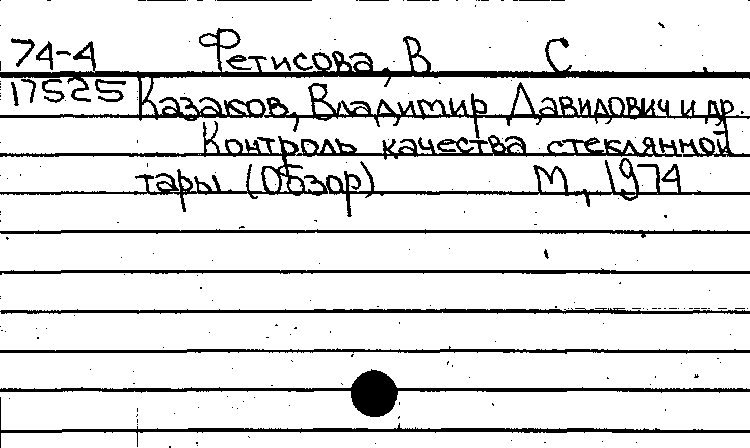 74-4 Фетисова, В С
17525 Казаков, Владимир Давидович и др.
Контроль качества стеклянной
тары (Обзор) М., 1974